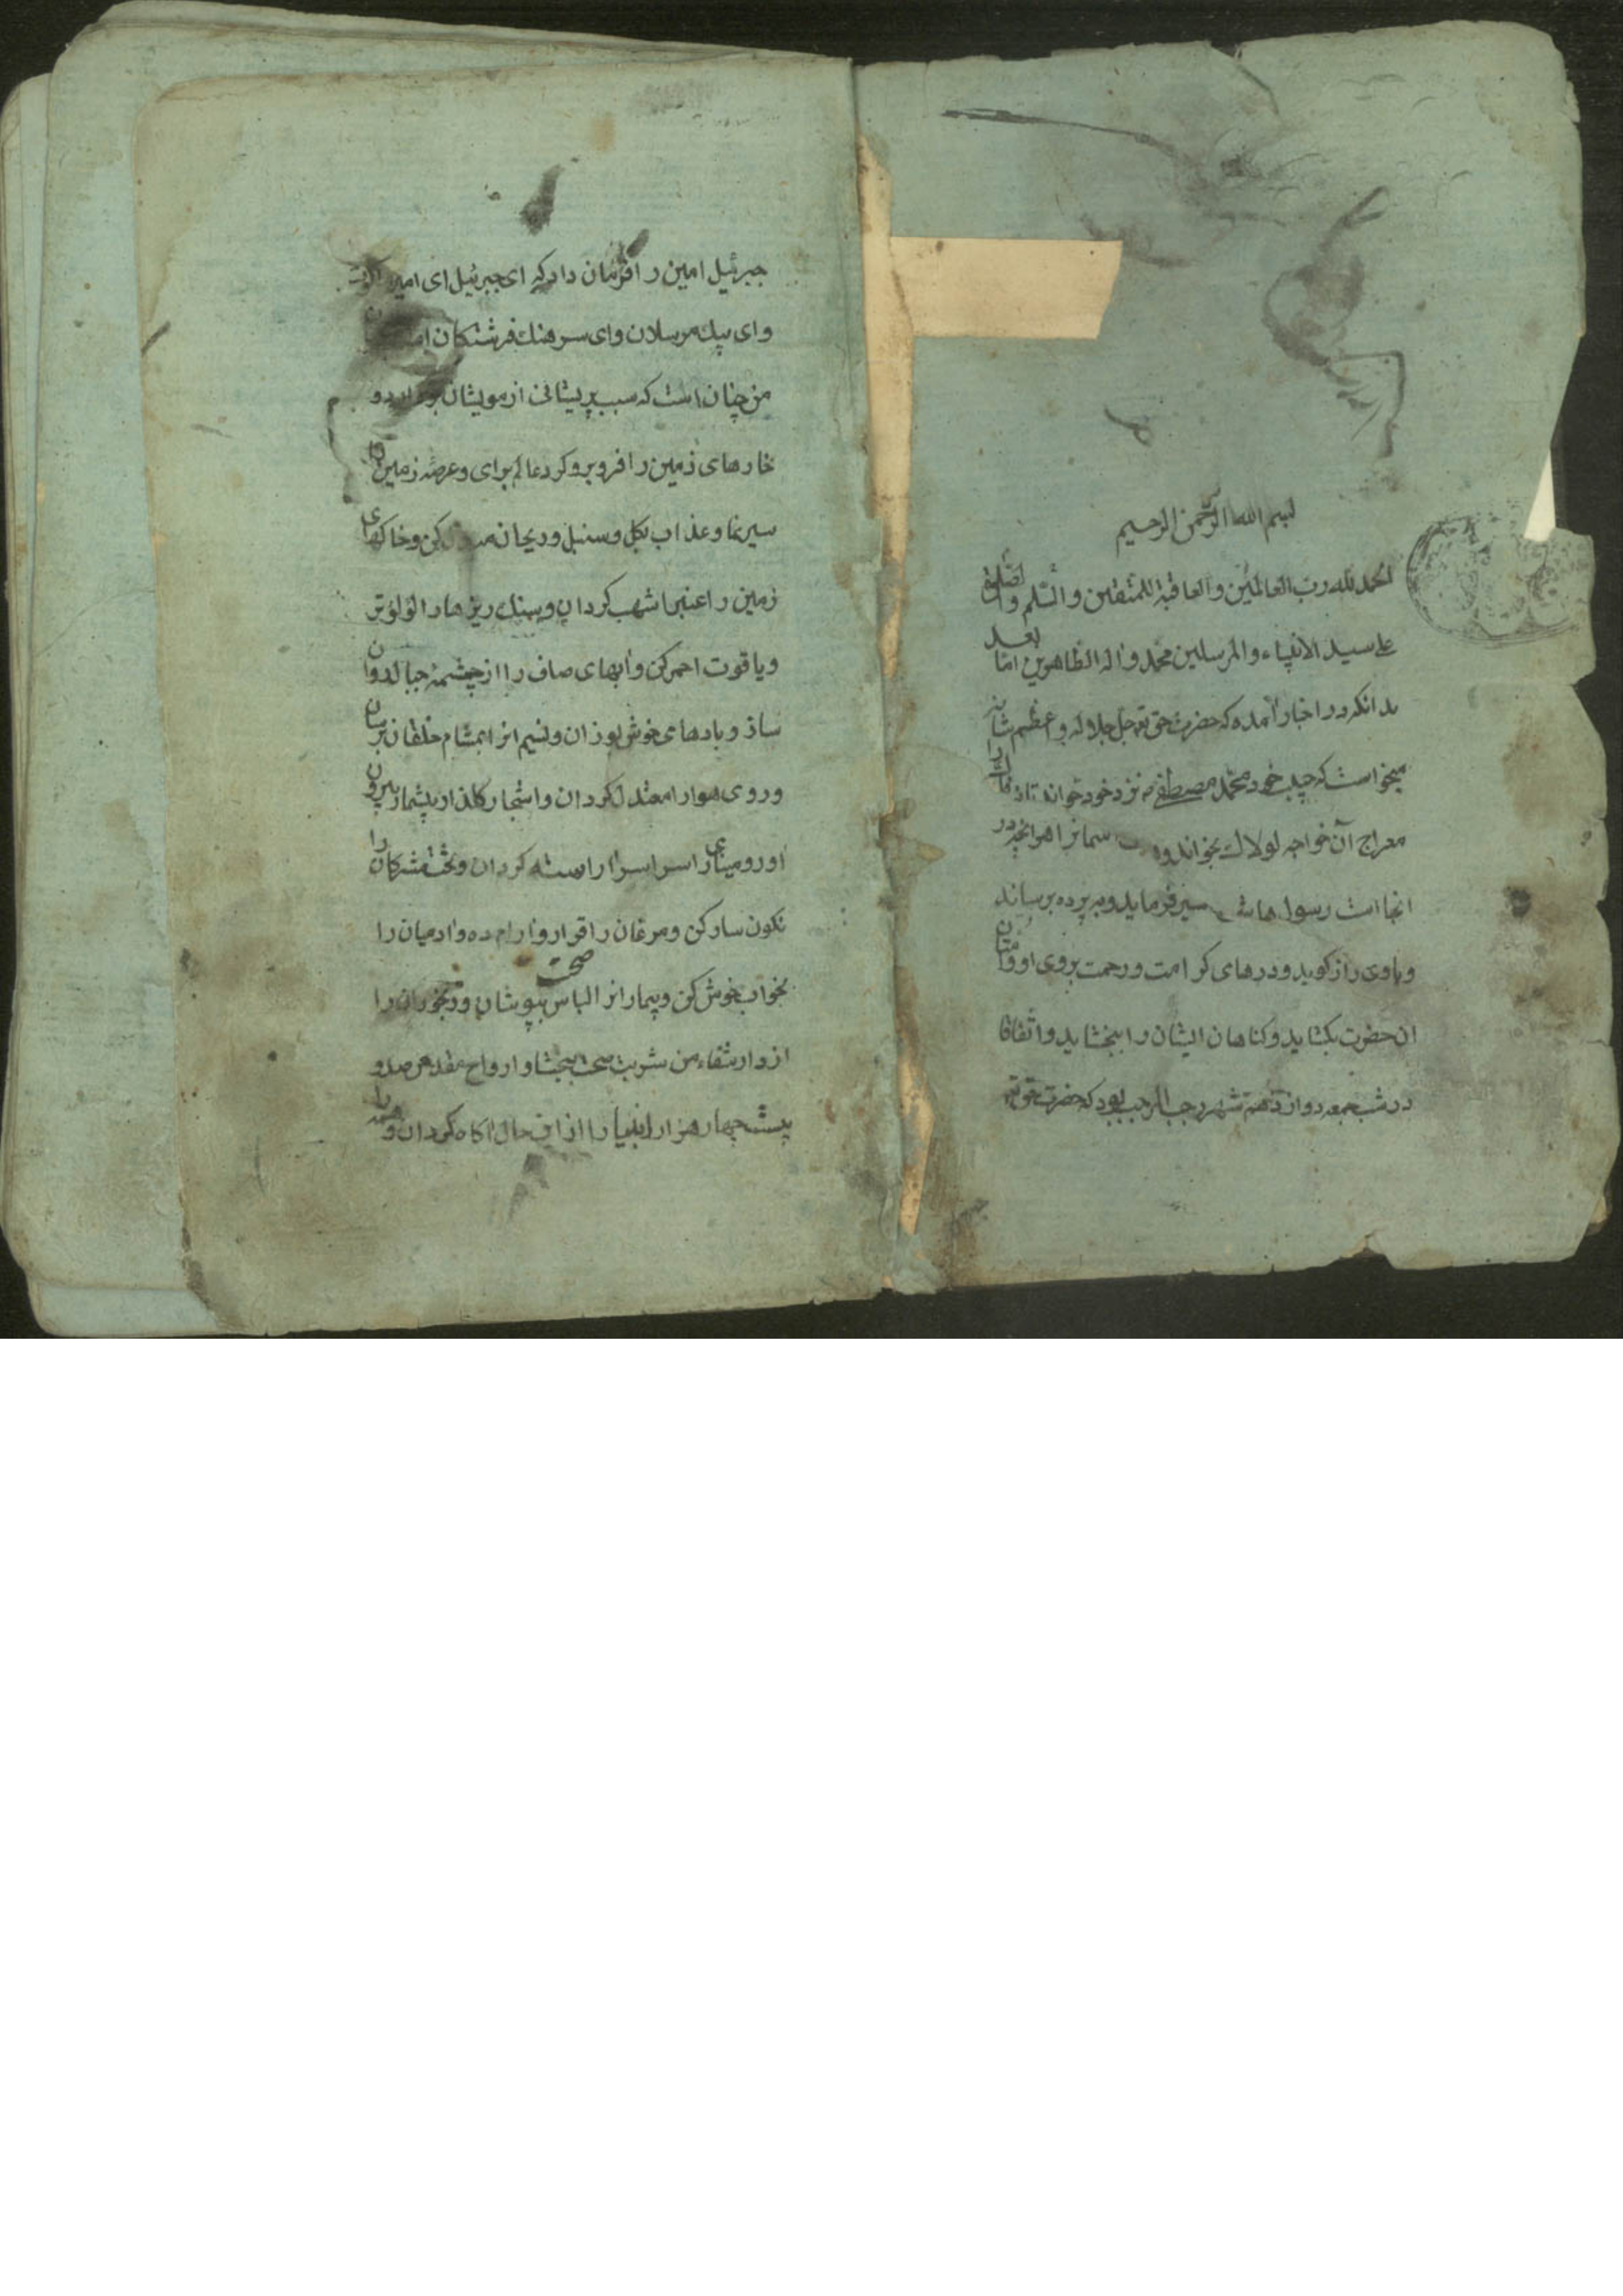 بسم الله الرحمن الرحیم
الحمد لله رب العالمین و العاقبة للمتقین و السّلم و الصّلوة
علی سید الانبیاء و المرسلین محمّد و اله الطاهرین امّا بعد
بدانکه در اخبار آمده که حضرت حق تع جل جلاله و عظم شانه
میخواست که حبیب خود محمّد مصطفی ص نزد خود خواند تا
معراج آن خواجه لولاک بخواند و سمانرا هر انچه در
انجا است رسول هاشمی سیر فرماید و به پرده برساند
و باوی راز کوید و درهای کرامت و رحمت بروی او و امّتان
ان حضرت بکشاید و کناهان ایشان را ببخشاید و اتّفاقا
در شب جمعه دوازدهم شهر رجب المرجب بود که حضرت حق تع
جبرئیل امین را فرمان داد که ای جبرئیل ای امین
و ای پیک مرسلان و ای سرهنک فرشتکان
من چنان است که سبب پریشانی از مویشان بردارد و
خارهای زمین را فرو برو کرد عالم برای و عرصه زمین
سیر نما و عذاب بکل و سنبل و ریحان کن و خاکهای
زمین را عنبر اشهب کردان و سنک ریزها را لؤلؤتر
و یاقوت احمر کن و ابهای صاف را از چشمهٔ جبال روان
ساز و بادهای خوش بوزان و نسیم انرا بمشام خلقان برسان
و روی هوا را معتدل کردان و اشجار کلذار بیشمار بیرون
اور و مینای را سراسر اراسته کردان و تخت مشرکان را
نکون سار کن و مرغان را قرار و ارام ده و ادمیان را
بخواب خوش کن و بیمارانرا لباس صحت بپوشان و رنجوران را
از دار شفاء من شربت صحت ببخشا و ارواح مقدس صد و
بیست چهار هزار انبیا را از این حال اکاه کردان و همه را